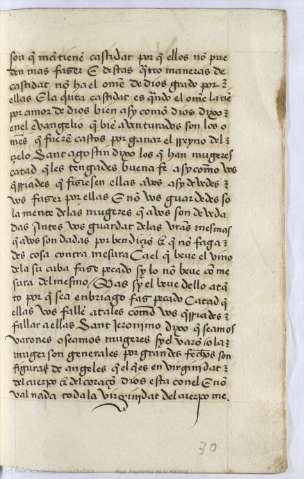 son q̃ mãtienẽ castidat por q̃ ellos nõ pue
den mas faser E destas q̃tro maneras de
castidat nõ ha el omẽ de dios grado por
ellas E la q̃nta castidat es q̃ndo el omẽ la tiẽ
por amor de dios bien asy comõ dios dixo
en el evangelio q̃ biẽ aventurados son los o
mẽs q̃ fuerẽ castos por ganar el rreyno del
çielo Sant agostin dixo los q̃ han mugeres
catad q̃ les tengades buena fe asy como vos
q̃rriades q̃ fisiesen ellas a vos asy devedes
vos faser por ellas E nõ vos guardedes so
la mente delas mugeres q̃ a vos son deveda
das Antes vos guardat delas vr̃as mesmas
q̃ a vos son dadas por bendiçiõ q̃ nõ faga
des cosa contra mesura Ca el q̃ beve el vino
dela su cuba fase pecado sy lo nõ beve cõ me
sura del mesmo Mas sy el beve dello atã
to por q̃ sea enbriago fas pecado Catad q̃
ellas vos fallẽ atales como vos q̃rriades
fallar a ellas Sant jeronimo dixo q̃ seamos
varones o seamos mugeres sy el varõ o la
muger son generales por grandes fechos son
figura de angeles q̃ el q̃ es en virginidat
del cuerpo del coraçõ dios esta con el E nõ
val nada toda la virginidat del cuerpo me
30